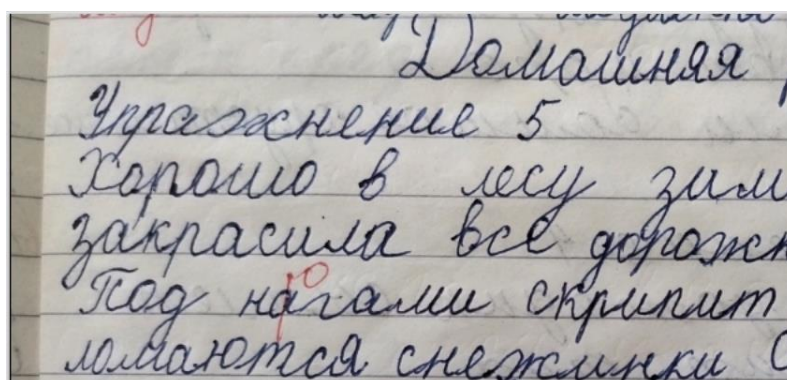 Домашняя
Упражнение 5
Хорошо в лесу зим
закрасила все дорожк
Под нагами скрипит
ломаются снежинки